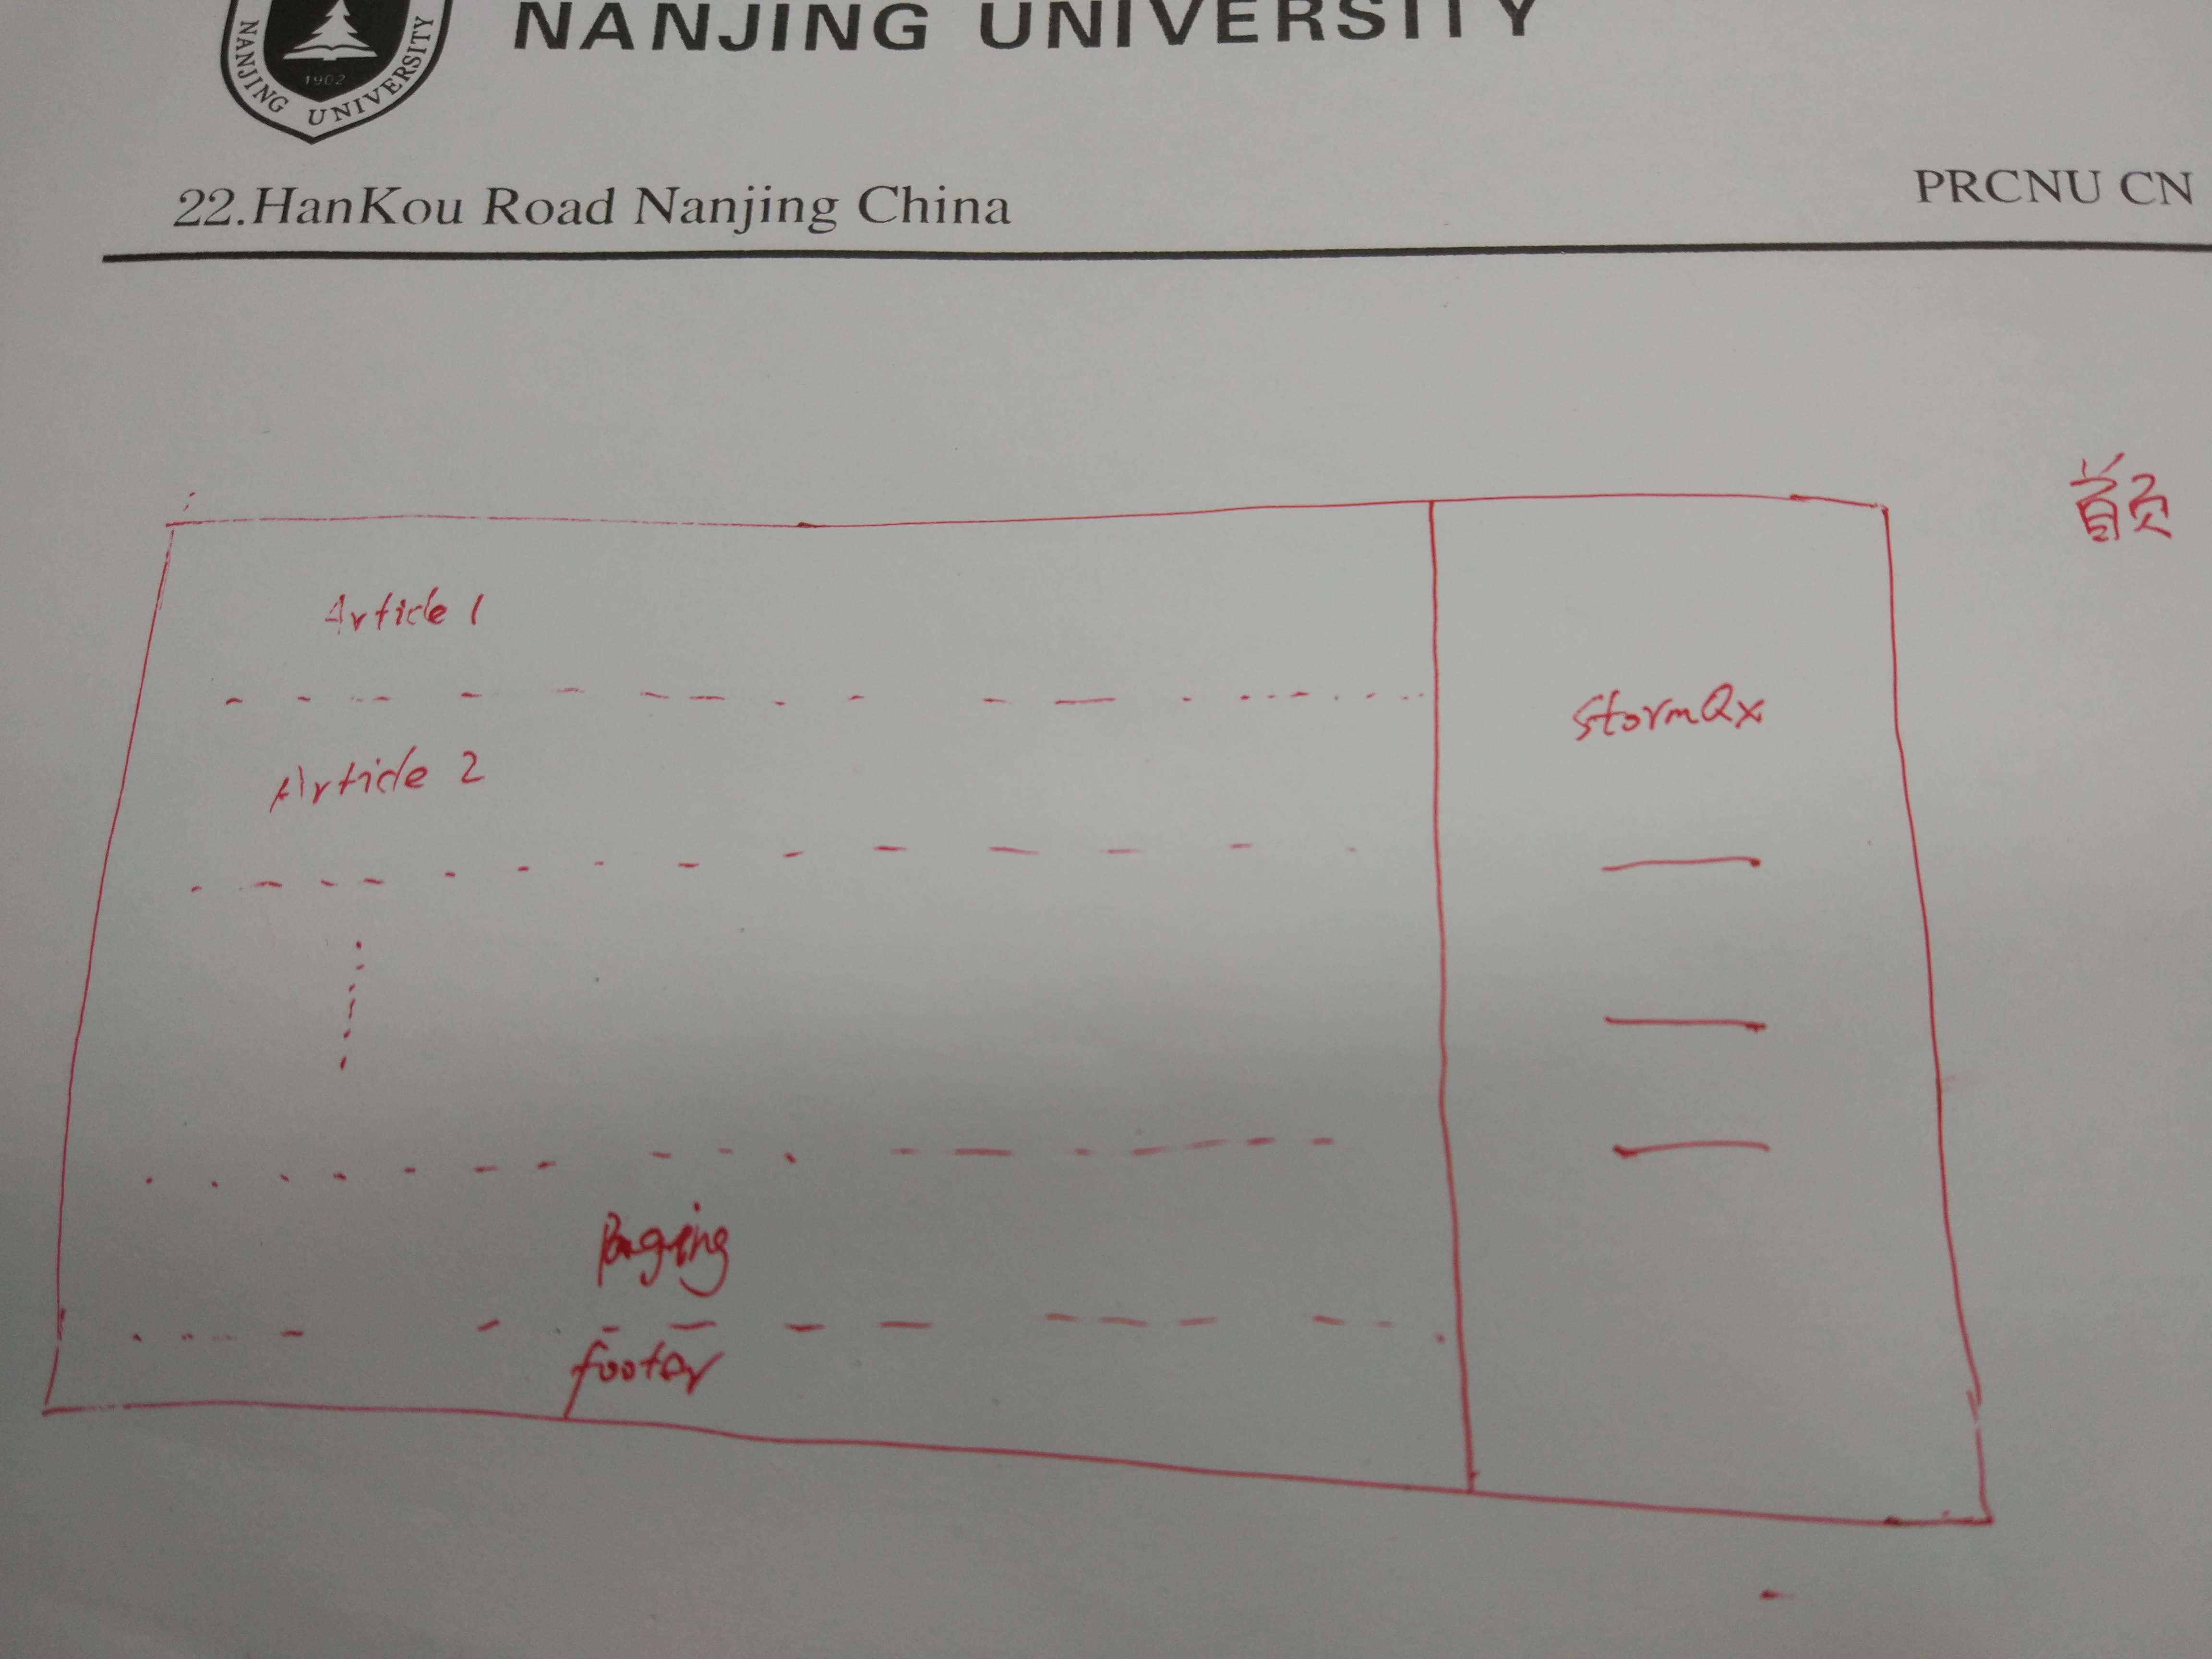 NANJING UNIVERSITY
NANJING UNIVERSITY
1902
22.HanKou Road Nanjing China
PRCNU CN
首页
Article 1
StormQx
Article 2
Paging
footer